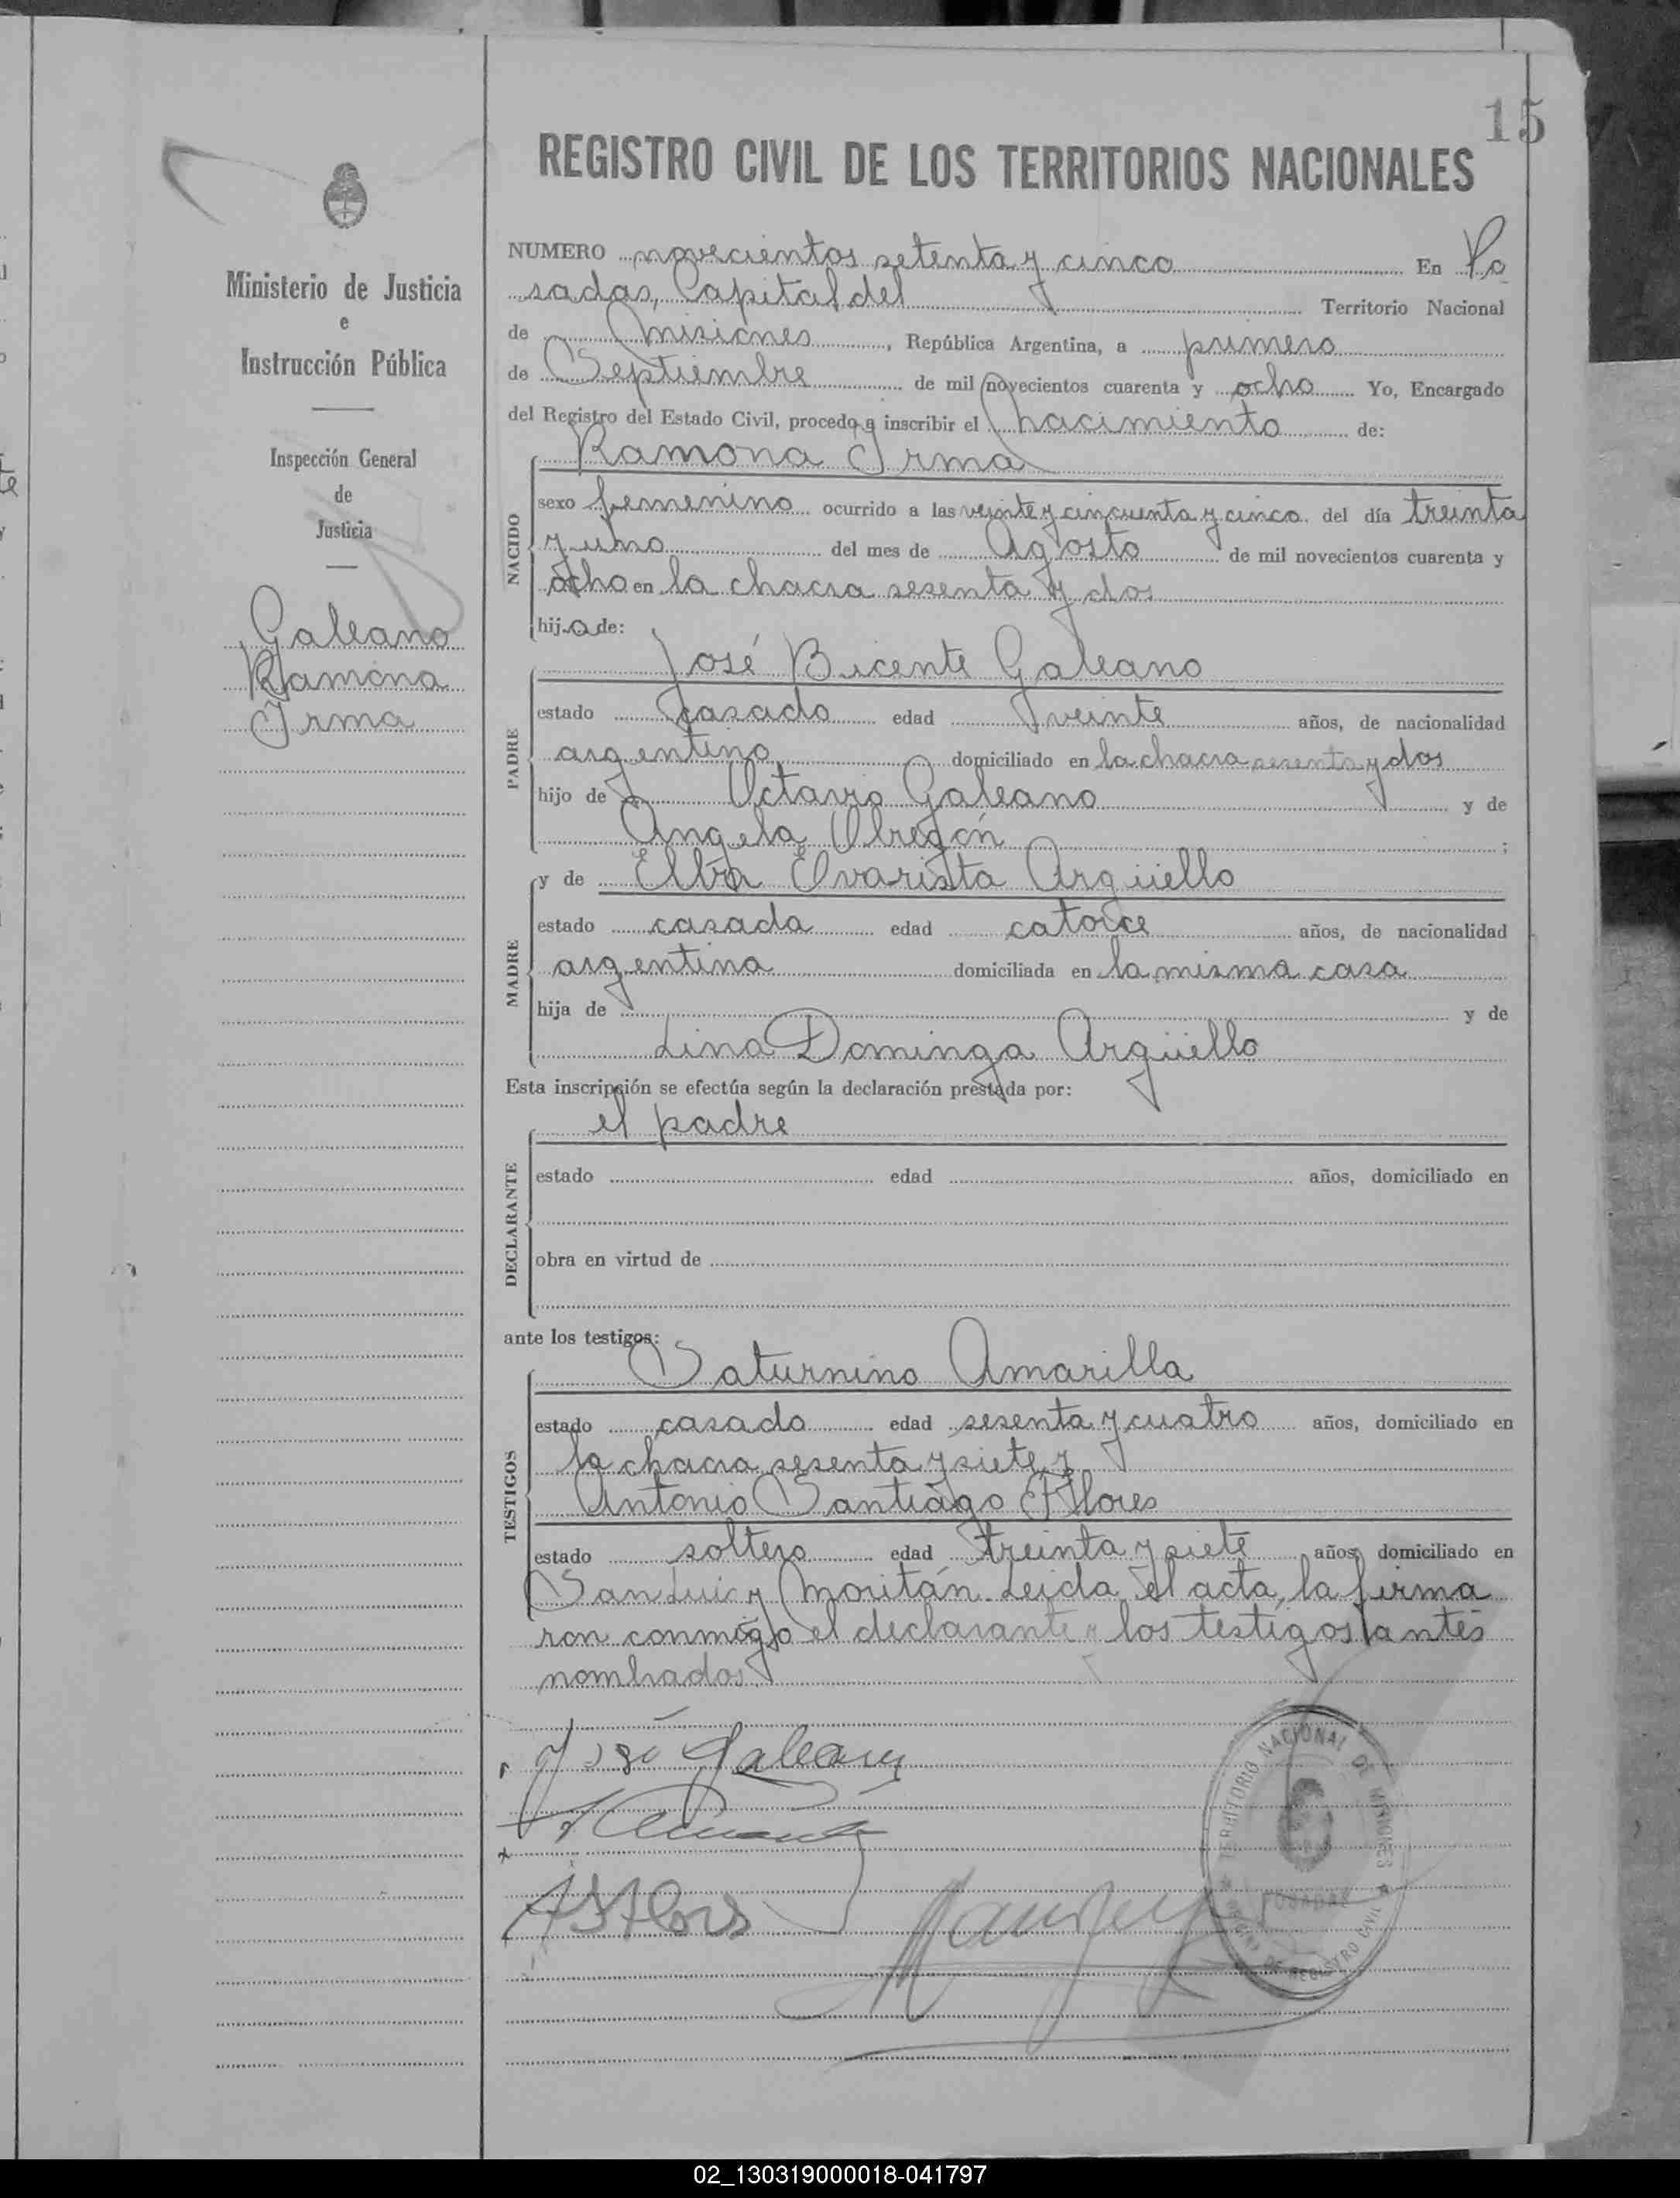 15
REGISTRO CIVIL DE LOS TERRITORIOS NACIONALES
Ministerio de Justicia
e
Instrucción Pública
Inspección General
de
Justicia
Galeano
Ramona
Irma
NUMERO novecientos setenta y cinco En Po
sadas, Capital del Territorio Nacional
de Misiones, República Argentina, a primero
de Septiembre de mil novecientos cuarenta y ocho Yo, Encargado
del Registro del Estado Civil, procedo a inscribir el nacimiento de:
Ramona Irma
NACIDO
sexo femenino ocurrido a las veinte y cincuenta y cinco del día treinta
y uno del mes de Agosto de mil novecientos cuarenta y
ocho en la chacra sesenta y dos
hija de:
José Bicente Galeano
PADRE
estado casado edad veinte años, de nacionalidad
argentino domiciliado en la chacra sesenta y dos
hijo de Octavio Galeano y de
Angela Obregón;
y de Elba Evarista Argüello
MADRE
estado casada edad catorce años, de nacionalidad
argentina domiciliada en la misma casa
hija de y de
Lina Dominga Argüello
Esta inscripción se efectúa según la declaración prestada por:
el padre
DECLARANTE
estado edad años, domiciliado en
obra en virtud de
ante los testigos:
Saturnino Amarilla
TESTIGOS
estado casado edad sesenta y cuatro años, domiciliado en
la chacra sesenta y siete y
Antonio Santiago Flores
estado soltero edad treinta y siete años, domiciliado en
San Luis y Moritán. Leida el acta, la firma
ron conmigo el declarante y los testigos antes
nombrados.
José Galeano
ASFlores
TERRITORIO NACIONAL DE MISIONES
POSADAS
DE REGISTRO CIVIL
02_130319000018-041797